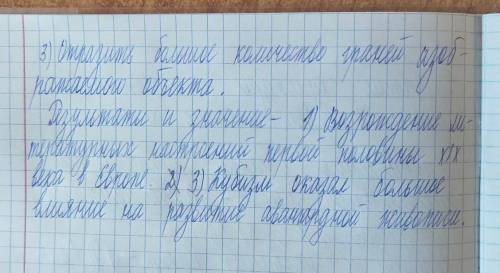 3) Отразить большое количество граней изоб-
ражаемого объекта.
Результаты и значение- 1) Возрождение ли-
тературных настроений первой половины XIX
века в Европе. 2) 3) Кубизм оказал большое
влияние на развитие авангардной живописи.